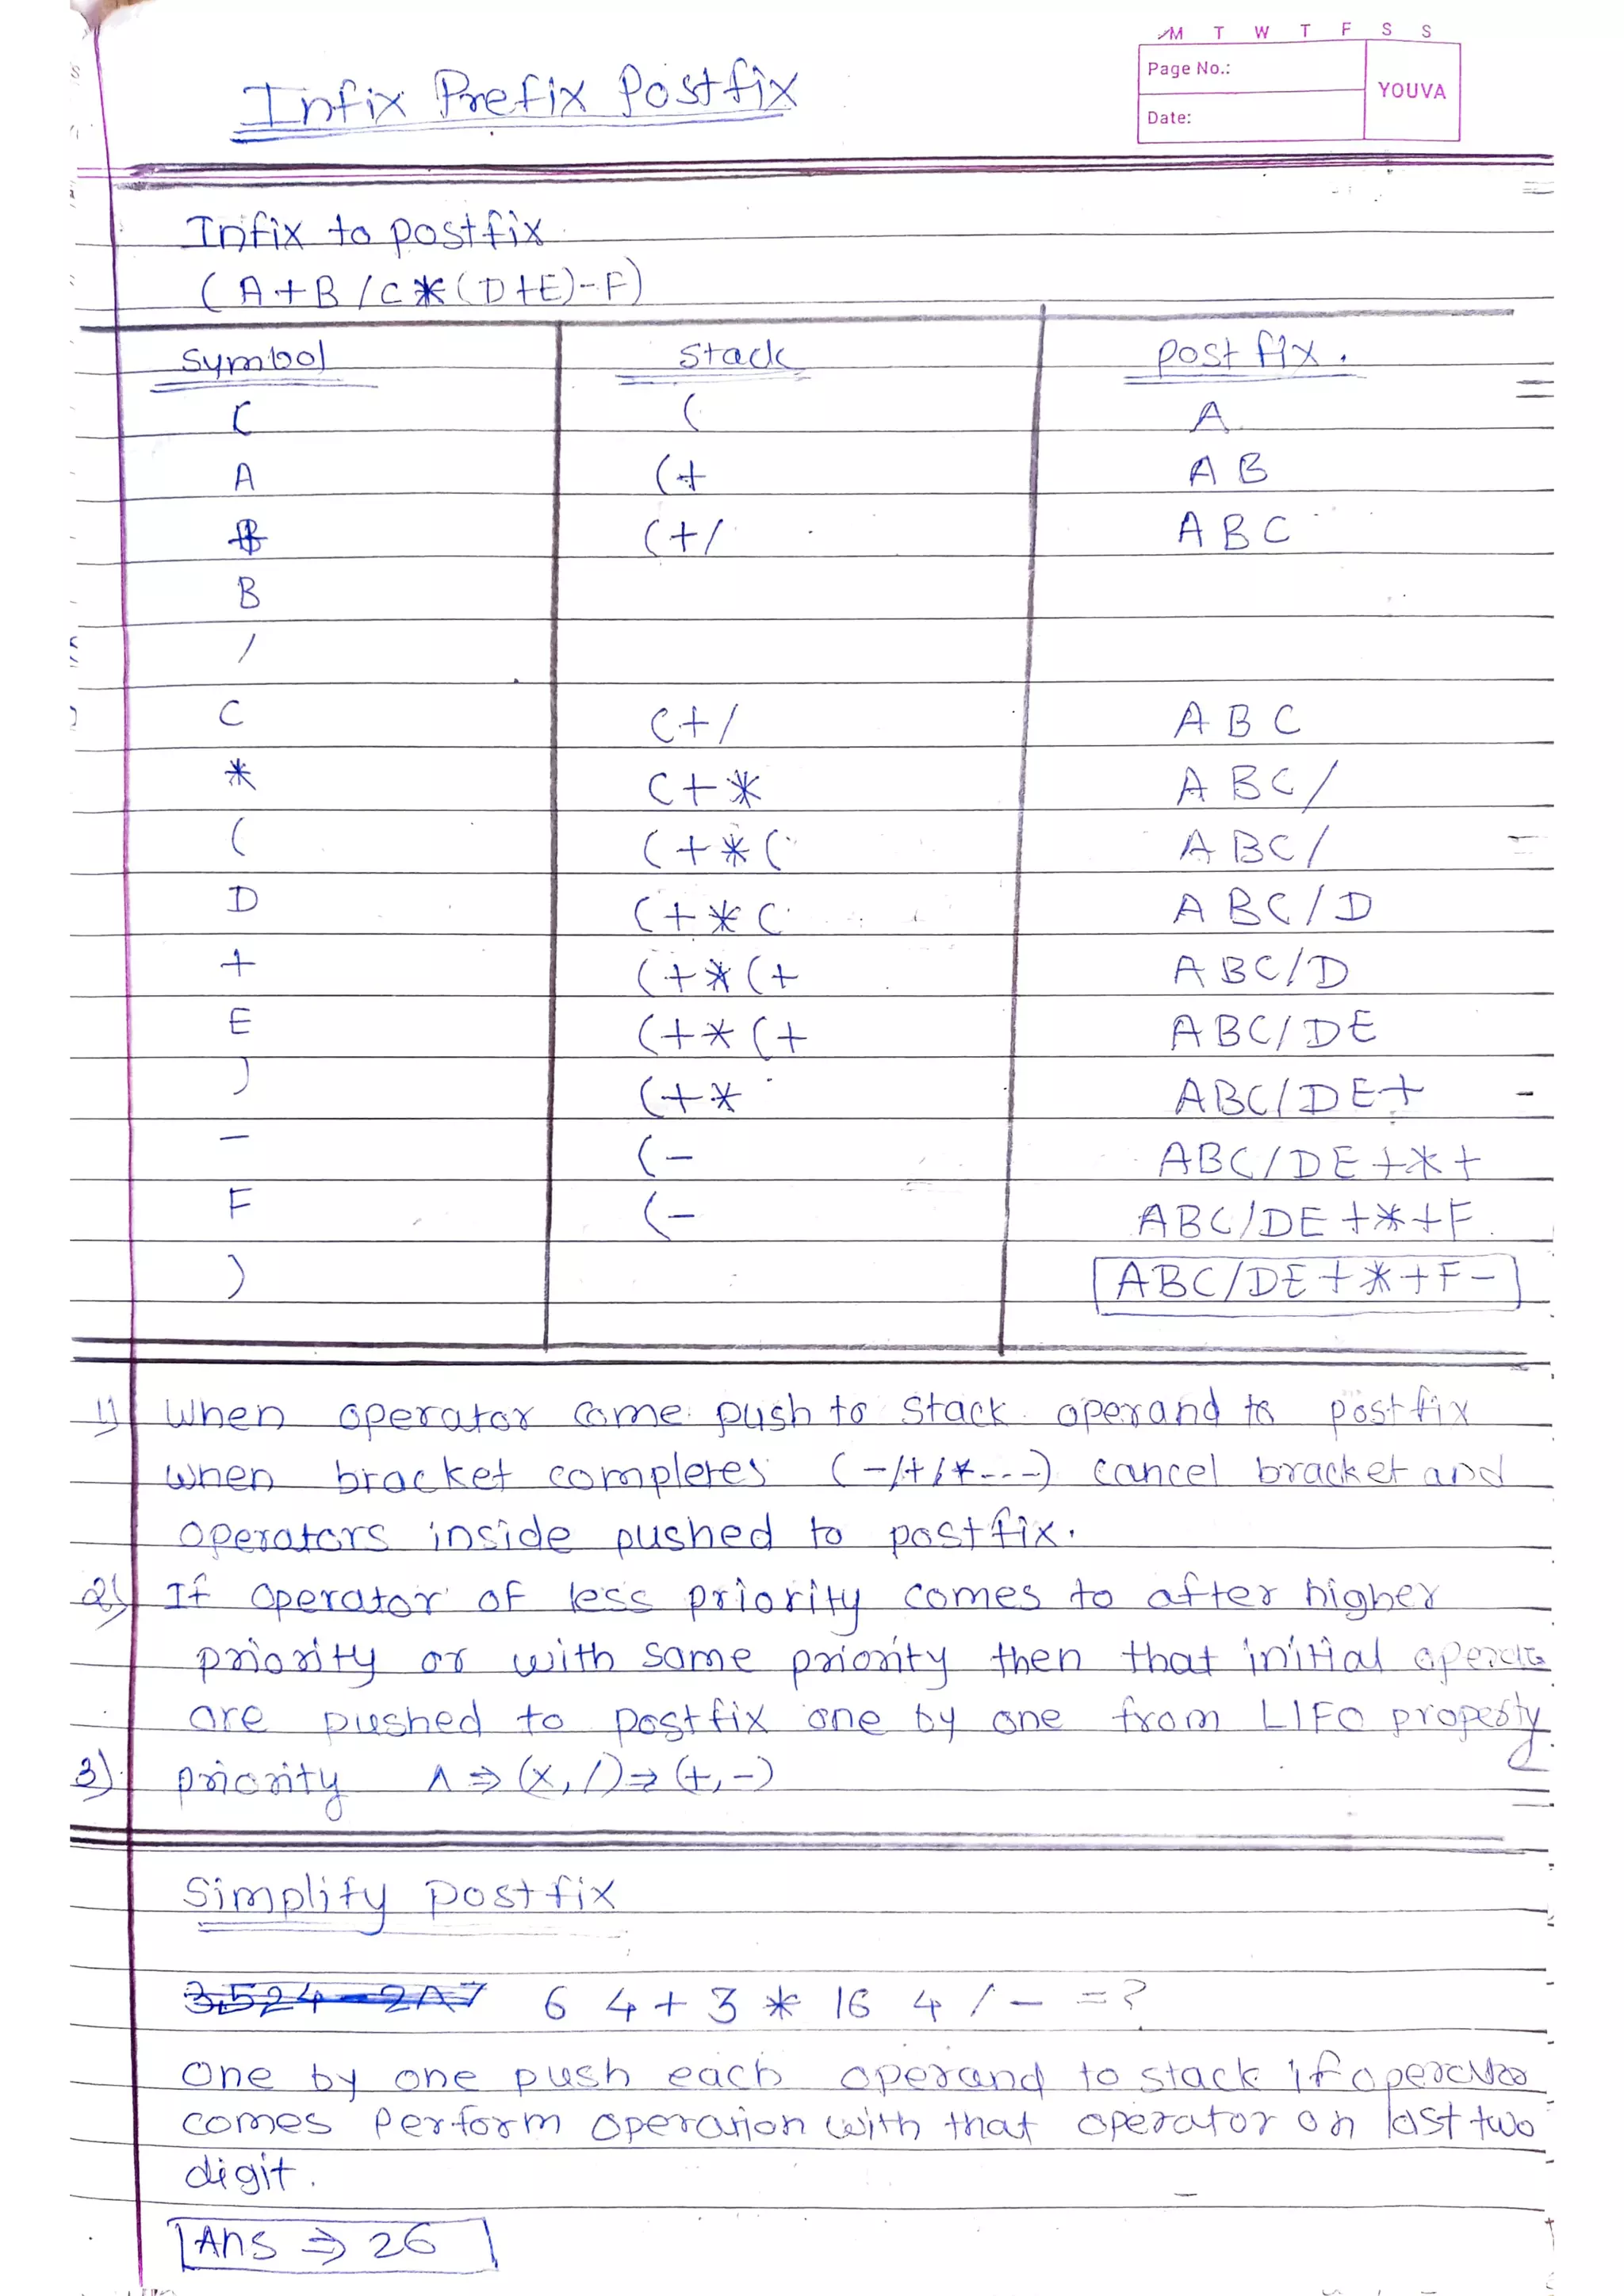 M T W T F S S
Page No.:
YOUVA
Date:
Infix Prefix Postfix
Infix to postfix
(A+B/C*(D+E)-F)
Symbol Stack postfix.
( ( A
A (+ AB
(+/ ABC
B
/
C (+/ ABC
* (+* ABC/
( (+*( ABC/
D (+*( ABC/D
+ (+*(+ ABC/D
E (+*(+ ABC/DE
) (+* ABC/DE+
- (- ABC/DE+*+
F (- ABC/DE+*+F
) ABC/DE+*+F-
1) When operator come push to stack operand to postfix
when bracket completes (-/+/*---) cancel bracket and
operators inside pushed to postfix.
2) If operator of less priority comes to after higher
priority or with same priority then that initial
are pushed to postfix one by one from LIFO property
3) priority ^ ⇒ (x, /) ⇒ (+, -)
Simplify postfix
3,524-2^7 6 4 + 3 * 16 4 / - = ?
One by one push each operand to stack if
comes Perform operation with that operator on last two
digit.
Ans ⇒ 26